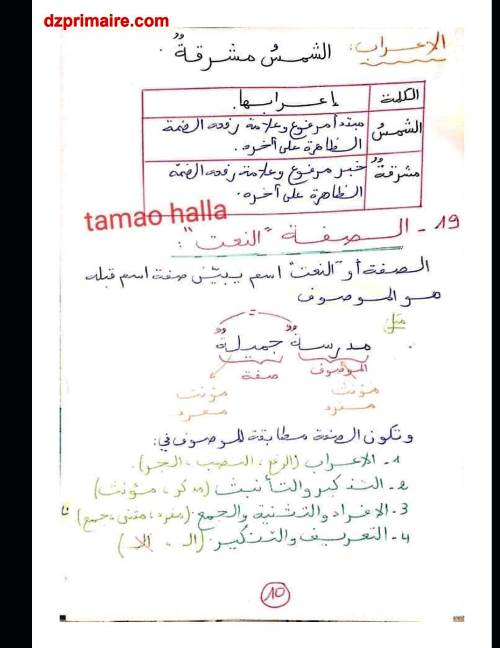 dzprimaire.com
الإعراب: الشمسُ مشرقةٌ.
الكلمة إعرابها.
الشمسُ مبتدأ مرفوع وعلامة رفعه الضمة
الظاهرة على آخره.
مشرقةٌ خبر مرفوع وعلامة رفعه الضمّة
الظاهرة على آخره.
tamao halla
19 - الصفة "النعت":
الصفة أو "النعت" اسم يبيّن صفة اسم قبله
هو الموصوف
مثل
مدرسةٌ جميلةٌ
الموصوف صفة
مؤنث مؤنث
مفرد مفرد
وتكون الصفة مطابقة للموصوف في:
1- الإعراب (الرفع، النصب، الجر).
2- التذكير والتأنيث (مذكر، مؤنث)
3- الإفراد والتثنية والجمع (مفرد، مثنى، جمع)
4- التعريف والتنكير (الـ ، الا)
10